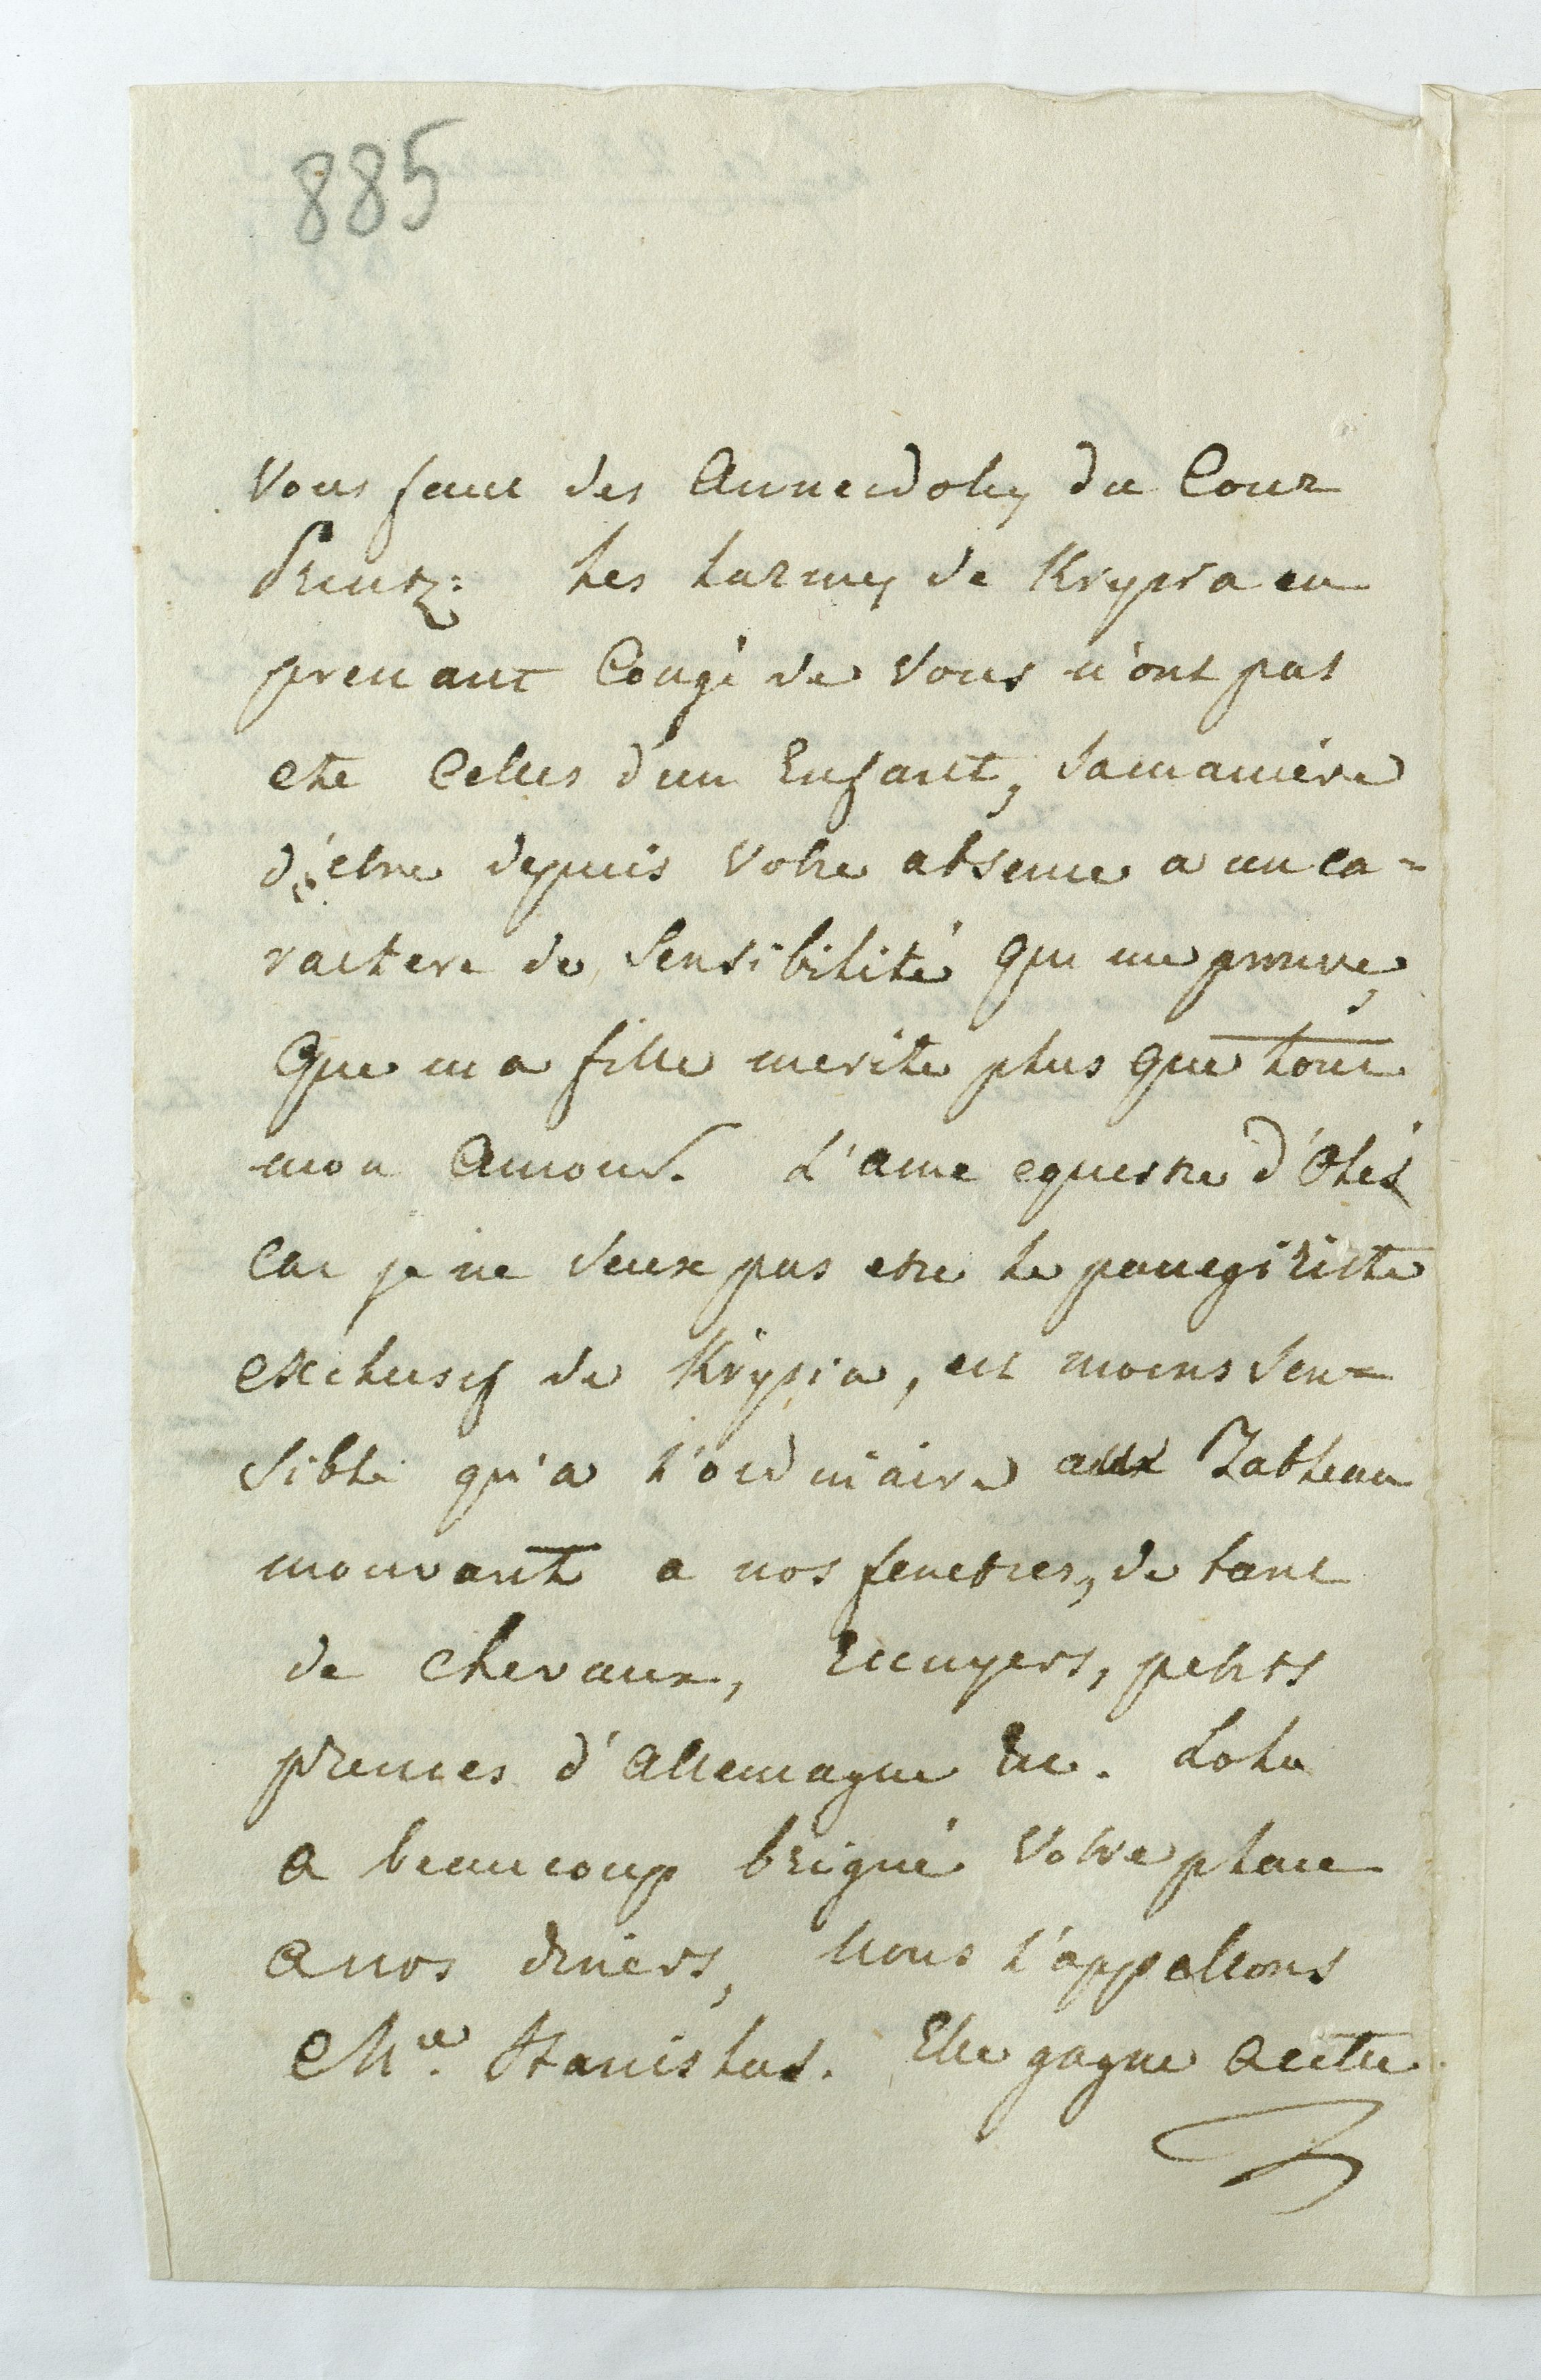 885
Vous faut des Annecdotes du Cour
prenez: les larmes de Krysia en
prenant Congé de Vous n'ont pas
ete Celles d'un Enfant, sa maniére
d'etre depuis Votre absence a un ca=
ractere de sensibilité qui me prouve,
Que ma fille merite plus que tout
mon Amour. L'ame equestre d'Olés
Car je ne veux pas etre le panegiriste
exclusif de Krysia, est moins sen=
sible qu'a l'ordinaire aux Tableau
mouvant a nos fenetres, de tant
de chevaux, Ecuyers, petits
princes d'Allemagne Etc. Lolu
a beaucoup brigué Votre place
a nos diners, Nous l'appellons
Mlle. Stanislas. Elle gagne a cette